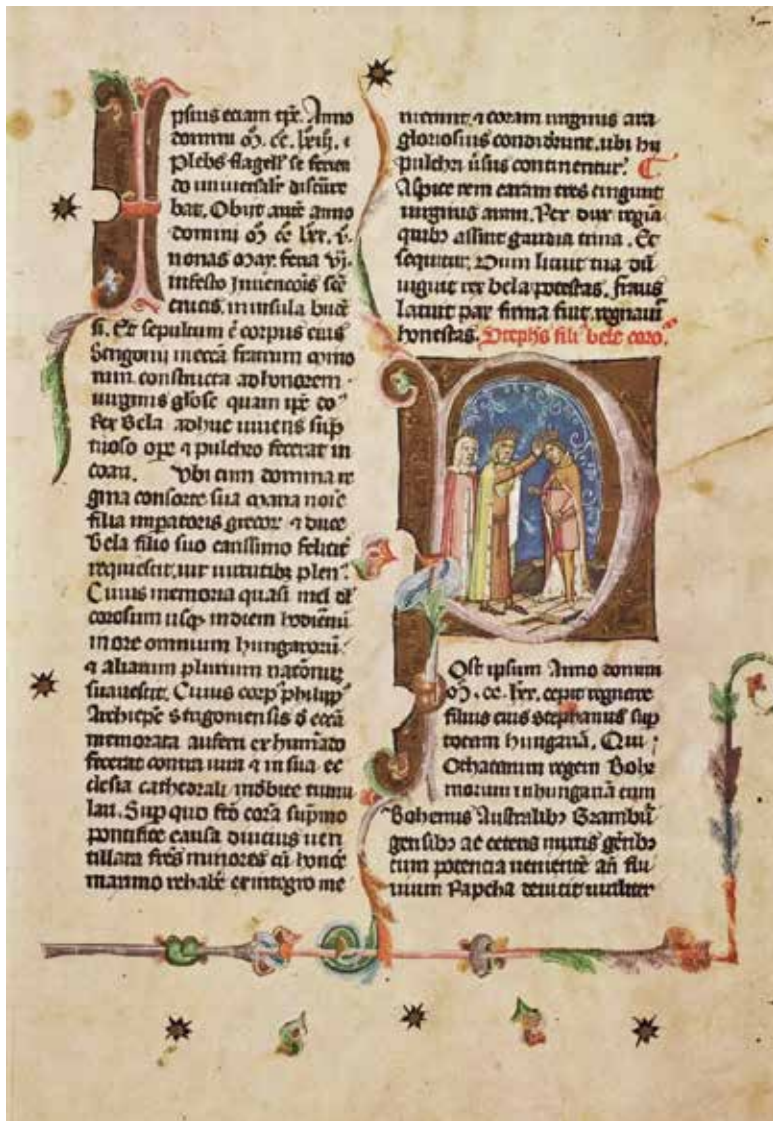 psius eciam tpe. Anno
domini Mº. CC. lxiij. i
Plebs flagell' se ferien
do universalr discurre
bat. Obijt aute anno
domini Mº CC lxx. v.
nonas May. feria vi.
in festo Invencois sce
crucis. in insula buce
si. Et sepultum e corpus eius
Strigonii in ecca fratrum mino
rum. constructa ad honorem
virginis gl'ose quam ipe do
Rex Bela adhuc vivens sup
tuoso ope et pulchro fecerat in
coari. Ubi cum domina re
gina consorte sua Maria noie
filia impatoris grecor et duce
Bela filio suo carissimo felicit
requiescit. vir virtutibz plen'.
Cuius memoria quasi mel dl
corosum usqz in diem hodiernu
in ore omnium hungarorum
et aliarum plurium nationuz
suavescit. Cuius corp' philipp'
Archiepc strigoniensis d' ecca
memorata auferri exhumato
fecerat contra iura et in sua ec
clesia cathedrali in obice tumu
lari. Sup quo fto cora supmo
pontifice causa divicius ven
tillata fres minores cu honore
maximo rehabere ex integro me
ruerunt et coram virginis ara
gloriosius condiderunt. ubi hij
pulchri v'sus continentur.
Aspice rem caram tres cingunt
virginis aram. Rex dux regia
quibz assint gaudia trina. Et
sequitur. Dum licuit tua du
viguit rex bela potestas. fraus
latuit pax firma fuit. regnavit
honestas. Steph's fili' bele coro.
Ost ipsum Anno domini
Mº. CC. lxx. cepit regnare
filius eius stephanus sup
totam hungaria. Qui
Othacarum regem Bohe
morum in hungaria cum
Bohemis Australibz Brambur
gensibz ac ceteris multis gentibz
cum potencia veniente an flu
vium Rapcha devicit viriliter